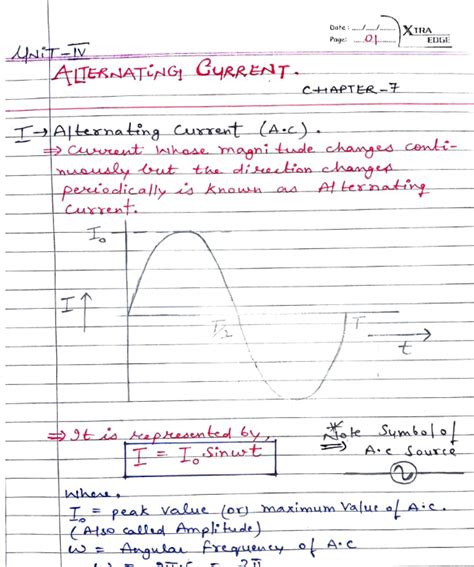 Date : __/__/__
Page: 01
XTRA EDGE
UNIT-IV
ALTERNATING CURRENT.
CHAPTER-7
I→ Alternating Current (A.C).
⇒ Current whose magnitude changes conti-
nuously but the direction changes
periodically is known as Alternating
Current.
I₀
I ↑
T/2
T
t
⇒ It is represented by,
I = I₀ sinωt
* Note Symbol of
⇒ A.C Source
Where,
I₀ = peak value (or) maximum value of A.C.
(Also called Amplitude)
ω = Angular frequency of A.C